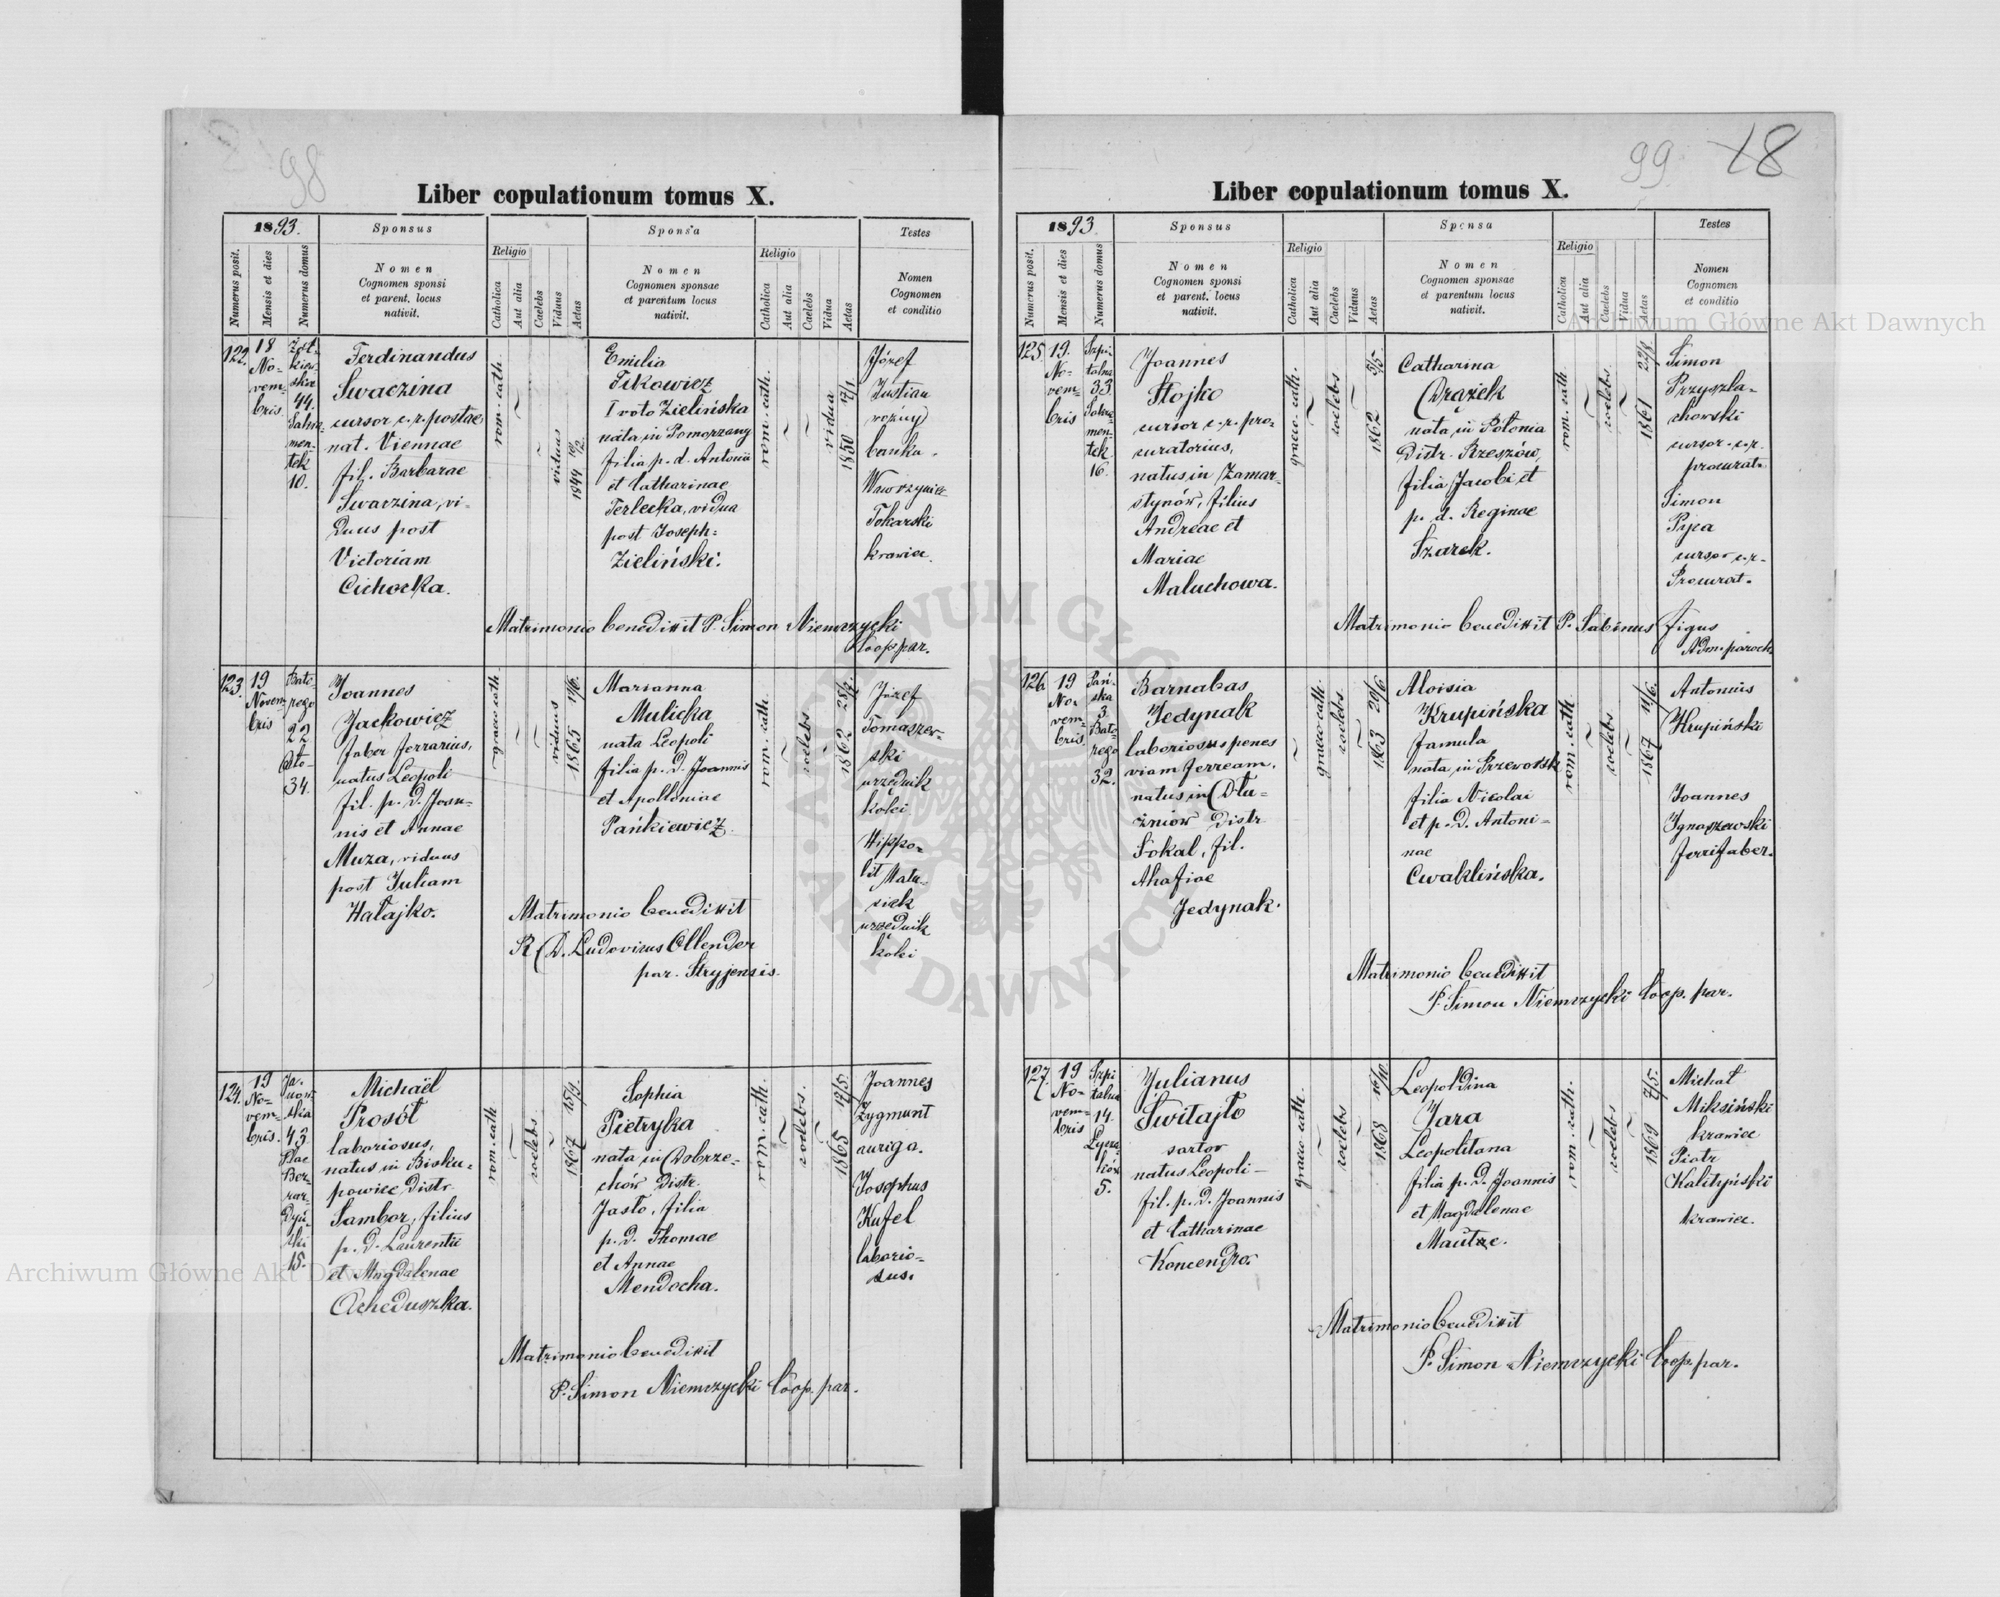 98
Liber copulationum tomus X.
1893.
Sponsus
Religio
Sponsa
Religio
Testes
Numerus posit.
Mensis et dies
Numerus domus
Nomen
Cognomen sponsi
et parent. locus
nativit.
Catholica
Aut alia
Caelebs
Viduus
Aetas
Nomen
Cognomen sponsae
et parentum locus
nativit.
Catholica
Aut alia
Caelebs
Vidua
Aetas
Nomen
Cognomen
et conditio
122.
18
No-
vem-
bris
44.
10.
Ferdinandus
Swaczina
cursor c. r. postae
nat. Viennae
fil. Barbarae
Swaczina, vi-
duus post
Victoriam
Cichocka.
rom. cath.
viduus
1844
Emilia
I voto Zielińska
nata in Pomorzany
filia p. d. Antonii
et Catharinae
Terlecka, vidua
post Joseph:
Zieliński.
rom. cath.
vidua
1850 7/1
Józef
Justian
woźny
banku.
Wawrzyniec
Tokarski
krawiec.
Matrimonio benedixit P. Simon Niemczycki
Coop. par.
123.
19
Novem-
bris
Bato-
rego
22
34.
Joannes
Jackowicz
faber ferrarius,
natus Leopoli
fil. p. d. Joan-
nis et Annae
Muza, viduus
post Juliam
Hałajko.
graeco cath.
viduus
1865
Marianna
Mulicka
nata Leopoli
filia p. d. Joannis
et Apolloniae
Pańkiewicz.
rom. cath.
coelebs
1862
Józef
Tomaszew-
ski
urzędnik
kolei
Hippo-
lit Matu-
siek
urzędnik
kolei
Matrimonio benedixit
R. D. Ludovicus Ollender
par. Stryjensis.
124.
19
No-
vem-
bris.
Ja-
now-
ska
43
Plac
Ber-
nar-
dyń-
ski
15.
Michaël
Prosół
laboriosus,
natus in Bisku-
powice Distr.
Sambor, filius
p. d. Laurentii
et Magdalenae
Acheduszka.
rom. cath
coelebs
1867 15/9.
Sophia
Pietryka
nata in Dobrze-
chów Distr.
Jasło, filia
p. d. Thomae
et Annae
Mendocha.
rom. cath.
coelebs.
1865 12/5.
Joannes
Zygmunt
auriga.
Josephus
Kufel
laborio-
sus.
Matrimonio benedixit
P. Simon Niemczycki Coop. par.
99
18
Liber copulationum tomus X.
1893.
Sponsus
Religio
Sponsa
Religio
Testes
Numerus posit.
Mensis et dies
Numerus domus
Nomen
Cognomen sponsi
et parent. locus
nativit.
Catholica
Aut alia
Caelebs
Viduus
Aetas
Nomen
Cognomen sponsae
et parentum locus
nativit.
Catholica
Aut alia
Caelebs
Vidua
Aetas
Nomen
Cognomen
et conditio
125.
19.
No-
vem-
bris
Szpi-
talna
33
16.
Joannes
Stojko
cursor c. r. pro-
curatorius,
natus in Zamar-
stynów, filius
Andreae et
Mariae
Maluchowa.
graeco. cath.
coelebs
1862 5/5.
Catharina
Drążek
nata in Polonia
Distr. Rzeszów,
filia Jacobi et
p. d. Reginae
Szarek.
rom. cath
coelebs.
1861 22/8
Simon
Przyszla-
chowski
cursor c. r.
procurat.
Simon
Pijea
cursor c. r.
Procurat.
Matrimonio benedixit P. Sabinus Figus
Adm. paroch
126.
19
No-
vem-
bris.
Pań-
ska
3.
Bato-
rego
32.
Barnabas
Jedynak
laboriosus penes
viam ferream,
natus in Dłu-
żniów Distr
Sokal, fil.
Ahafiae
Jedynak.
graeco cath.
coelebs
1863 20/6
Aloisia
Krupińska
famula
nata in Przeworsk
filia Nicolai
et p. d. Antoni-
nae
Cwaklińska.
rom. cath
coelebs
1867 11/6.
Antonius
Krupiński
Joannes
Ignaszewski
ferrifaber.
Matrimonio benedixit
P. Simon Niemczycki Coop. par.
127.
19
No-
vem-
bris
Szpi
talna
14.
Lycza-
ków
5.
Julianus
Świtajło
sartor
natus Leopoli-
fil. p. d. Joannis
et Catharinae
Koncendro.
graeco cath.
coelebs
1868 16/10.
Leopoldina
Jara
Leopolitana
filia p. d. Joannis
et Magdalenae
Mautze.
rom. cath.
coelebs
1869 7/5.
Michał
Miksiński
krawiec
Piotr
Kalityński
krawiec.
Matrimonio benedixit
P. Simon Niemczycki Coop. par.
Archiwum Główne Akt Dawnych
Archiwum Główne Akt Dawnych
ARCHIWUM GŁÓWNE AKT DAWNYCH